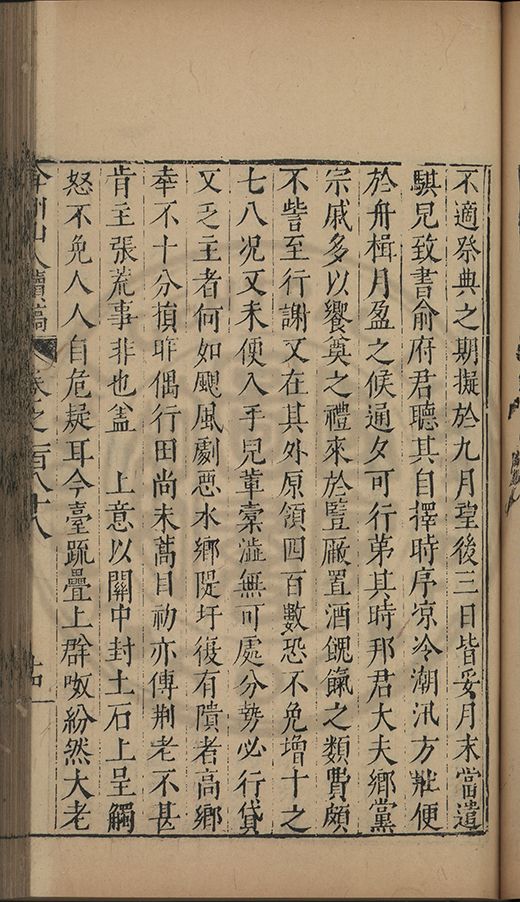 不適祭典之期擬於九月望後三日皆妥月末當遣
騏兒致書俞府君聽其自擇時序凉冷潮汛方壯便
於舟楫月盈之候通夕可行第其時邢君大夫鄉黨
宗戚多以饗奠之禮來於監厰置酒餽餼之類費頗
不訾至行謝又在其外原領四百數恐不免增十之
七八况又未便入手兒輩橐澁無可處分勢必行貸
又乏主者何如颶風劇惡水鄉隄圩復有隤者高鄉
幸不十分損昨偶行田尚未蒿目初亦傳荆老不甚
肯主張荒事非也盖 上意以關中封土石上呈觸
怒不免人人自危疑耳今臺疏疊上群呶紛然大老
弇州山人續稿 卷之一百八十八 十四